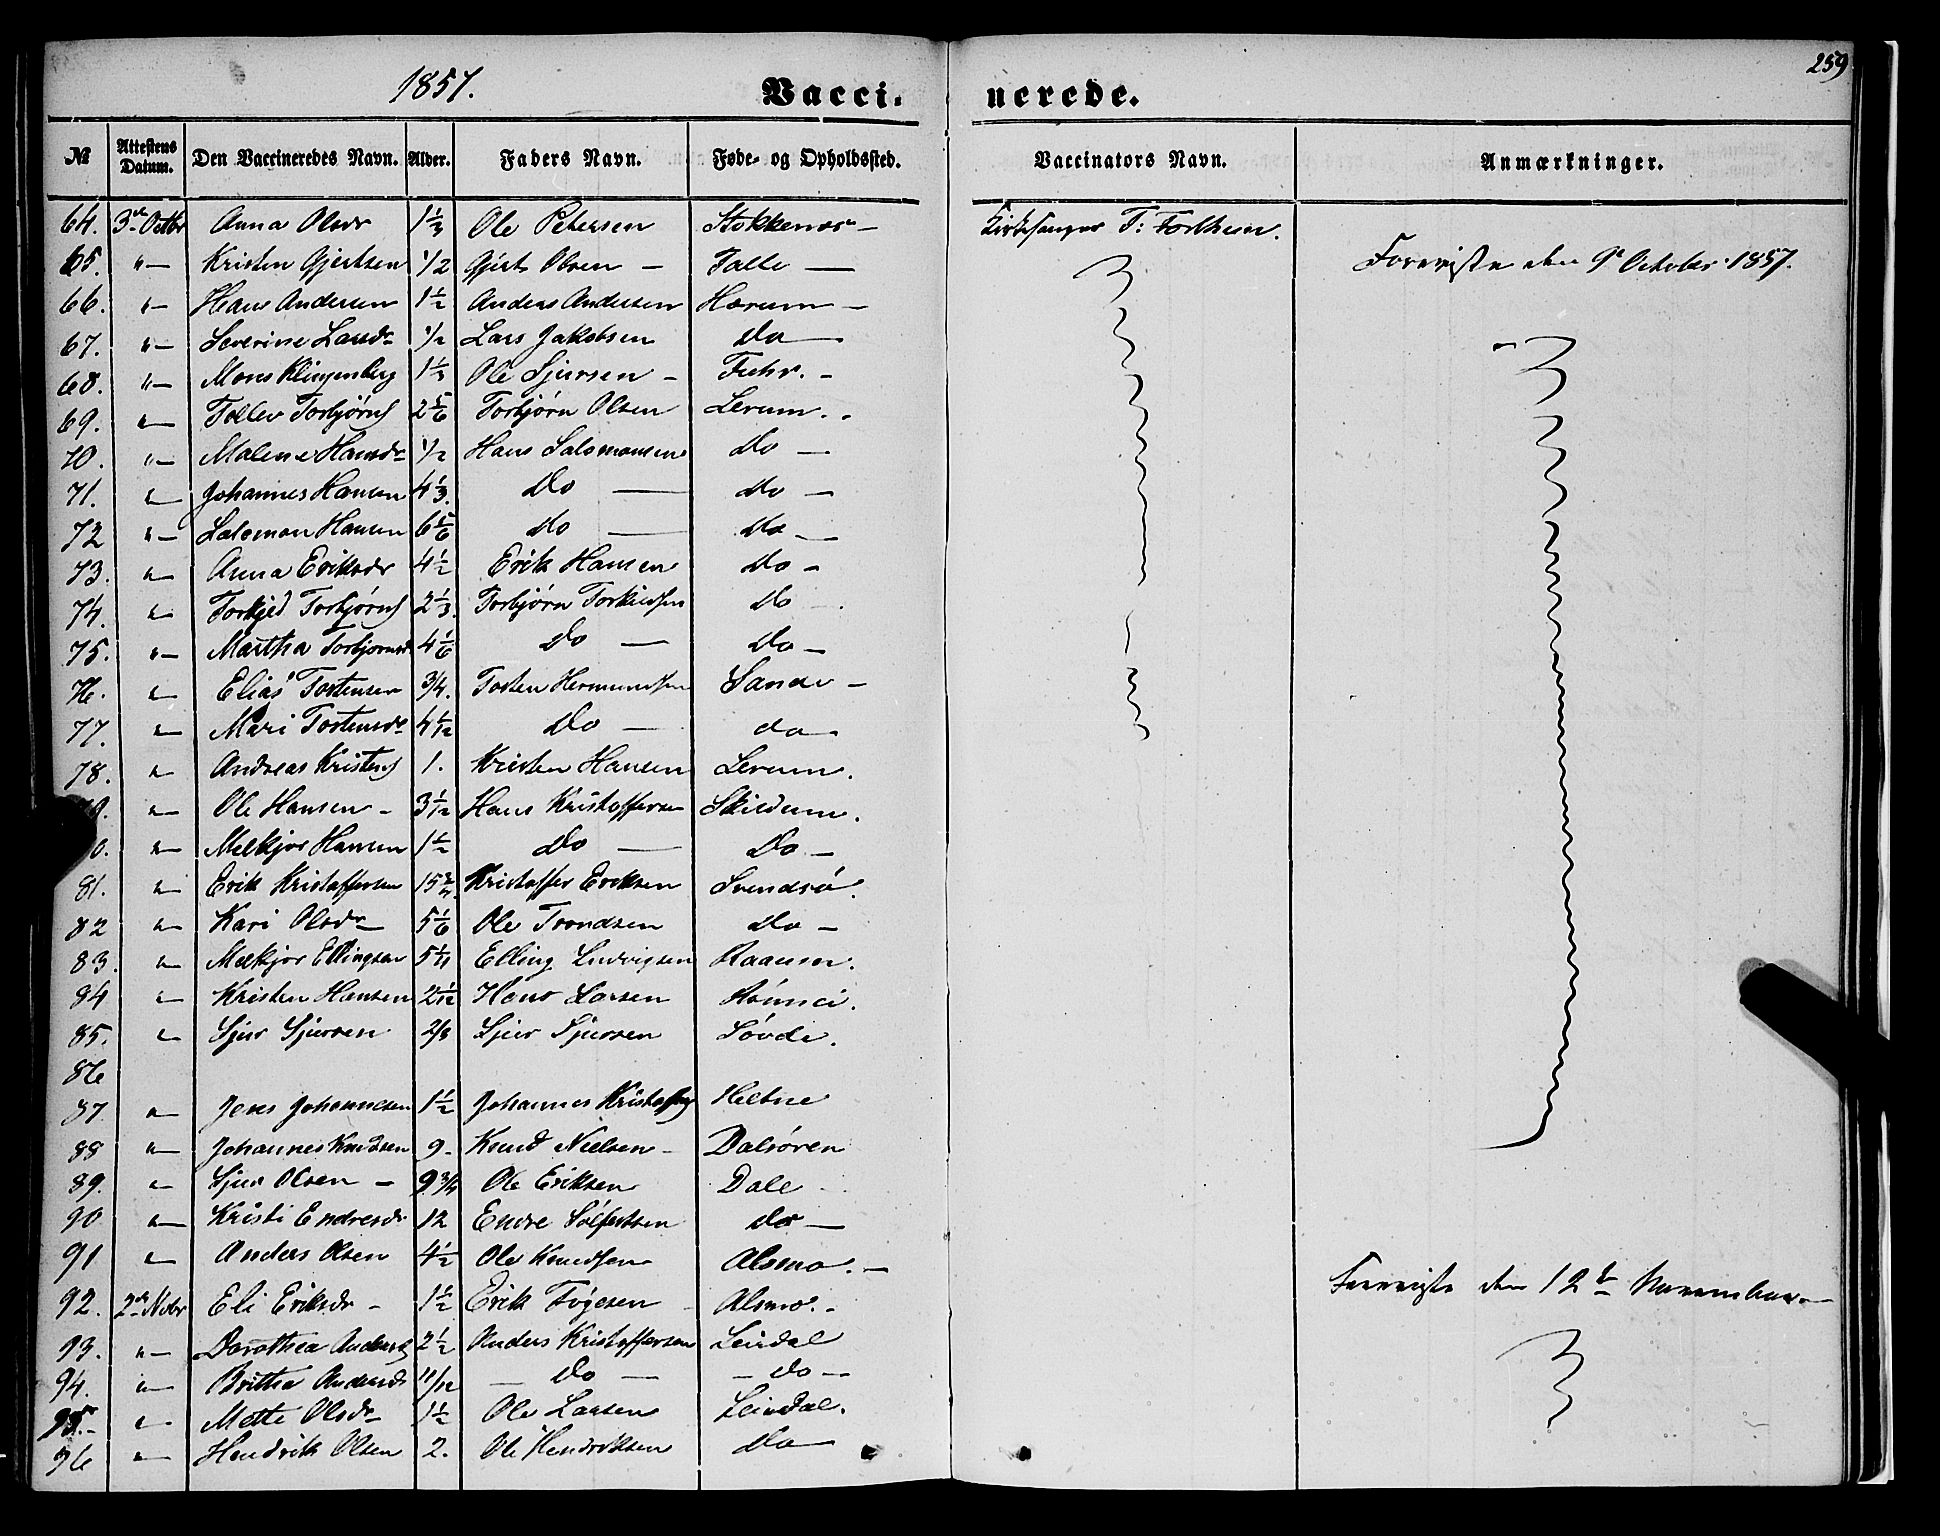 259
1857.
Vacci- nerede.
№ Attestens Datum. Den Vaccineredes Navn. Alder. Faders Navn. Føde- og Opholdssted. Vaccinators Navn. Anmærkninger.
64. 3de Octbr Anna Olsdr 1 1/3 Ole Petersen Stokkenæs — Kirkesanger T:
65. "— Kristen Gjertsen 1/2 Gjert Olsen — Talle — den 9de October 1857.
66. "— Hans Andersen 1 1/2 Anders Andersen Hærum —
67. "— Severine Larsdr 1/2 Lars Jakobsen do —
68. "— Mons Klingenberg 1 1/3 Ole Sjursen — Fuhr. -
69. "— Tollev Torbjørns 2 5/6 Torbjørn Olsen Lerum. -
70. "— Malene Hansdr 1/2 Hans Salomonsen do —
71. "— Johannes Hansen 4 1/3. Do — do —
72 "— Salomon Hansen 6 5/6 do — do —
73. "— Anna Eriksdr 4 1/2 Erik Hansen do -
74. "— Torkjed Torbjørns 2 1/3. Torbjørn Torkildsen do -
75. "— Martha Torbjørnsd 4 1/6 Do — do —
76. "— Elias Tostensen 3/4. Tosten Hermundsen Sande -
77. "— Mari Tostensdr 4 1/12 Do — do —
78. "— Andreas Kristens 1. Kristen Hansen Lerum.
9. "— Ole Hansen - 3 1/12 Hans Kristoffersen Skildum.
0. "— Melkjor Hansen 1 1/2 Do — Do —
81. "— Erik Kristoffersen 15 3/4. Kristoffer Eriksen
82 "— Kari Olsdr 5 1/6 Ole Trondsen do -
83. "— Melkjor Ellingsen 5 Elling Ludvigsen
84 "— Kristen Hansen 2 1/12 Hans Larsen
85. "— Sjur Sjursen 2/3 Sjur Sjursen Søvde.
86
87 "— Jens Johannesen 1 1/2 Johannes Kristoffers Heltne
88 "— Johannes Knudsen 9- Knud Nielsen - Dalsøren
89. "— Sjur Olsen - 9 3/4 Ole Eriksen Dale -
90 "— Kristi Endresdr 12 Endre do —
91 "— Anders Olsen 4 1/2 Ole Knudsen Alsmo. —
92. 2den Nvbr Eli Eriksdr - 1 1/2 Erik - Alsmo. - den 12te November —
93. "— Dorothea Andersd 2 1/2 Anders Kristoffersen Leirdal
94. "— Britha Andersdr 11/12 — Do — - do —
95.- "— Mette Olsdr 1 1/2 Ole Larsen Leirdal.
96 "— Hendrik Olsen 2. Ole Hendriksen do —